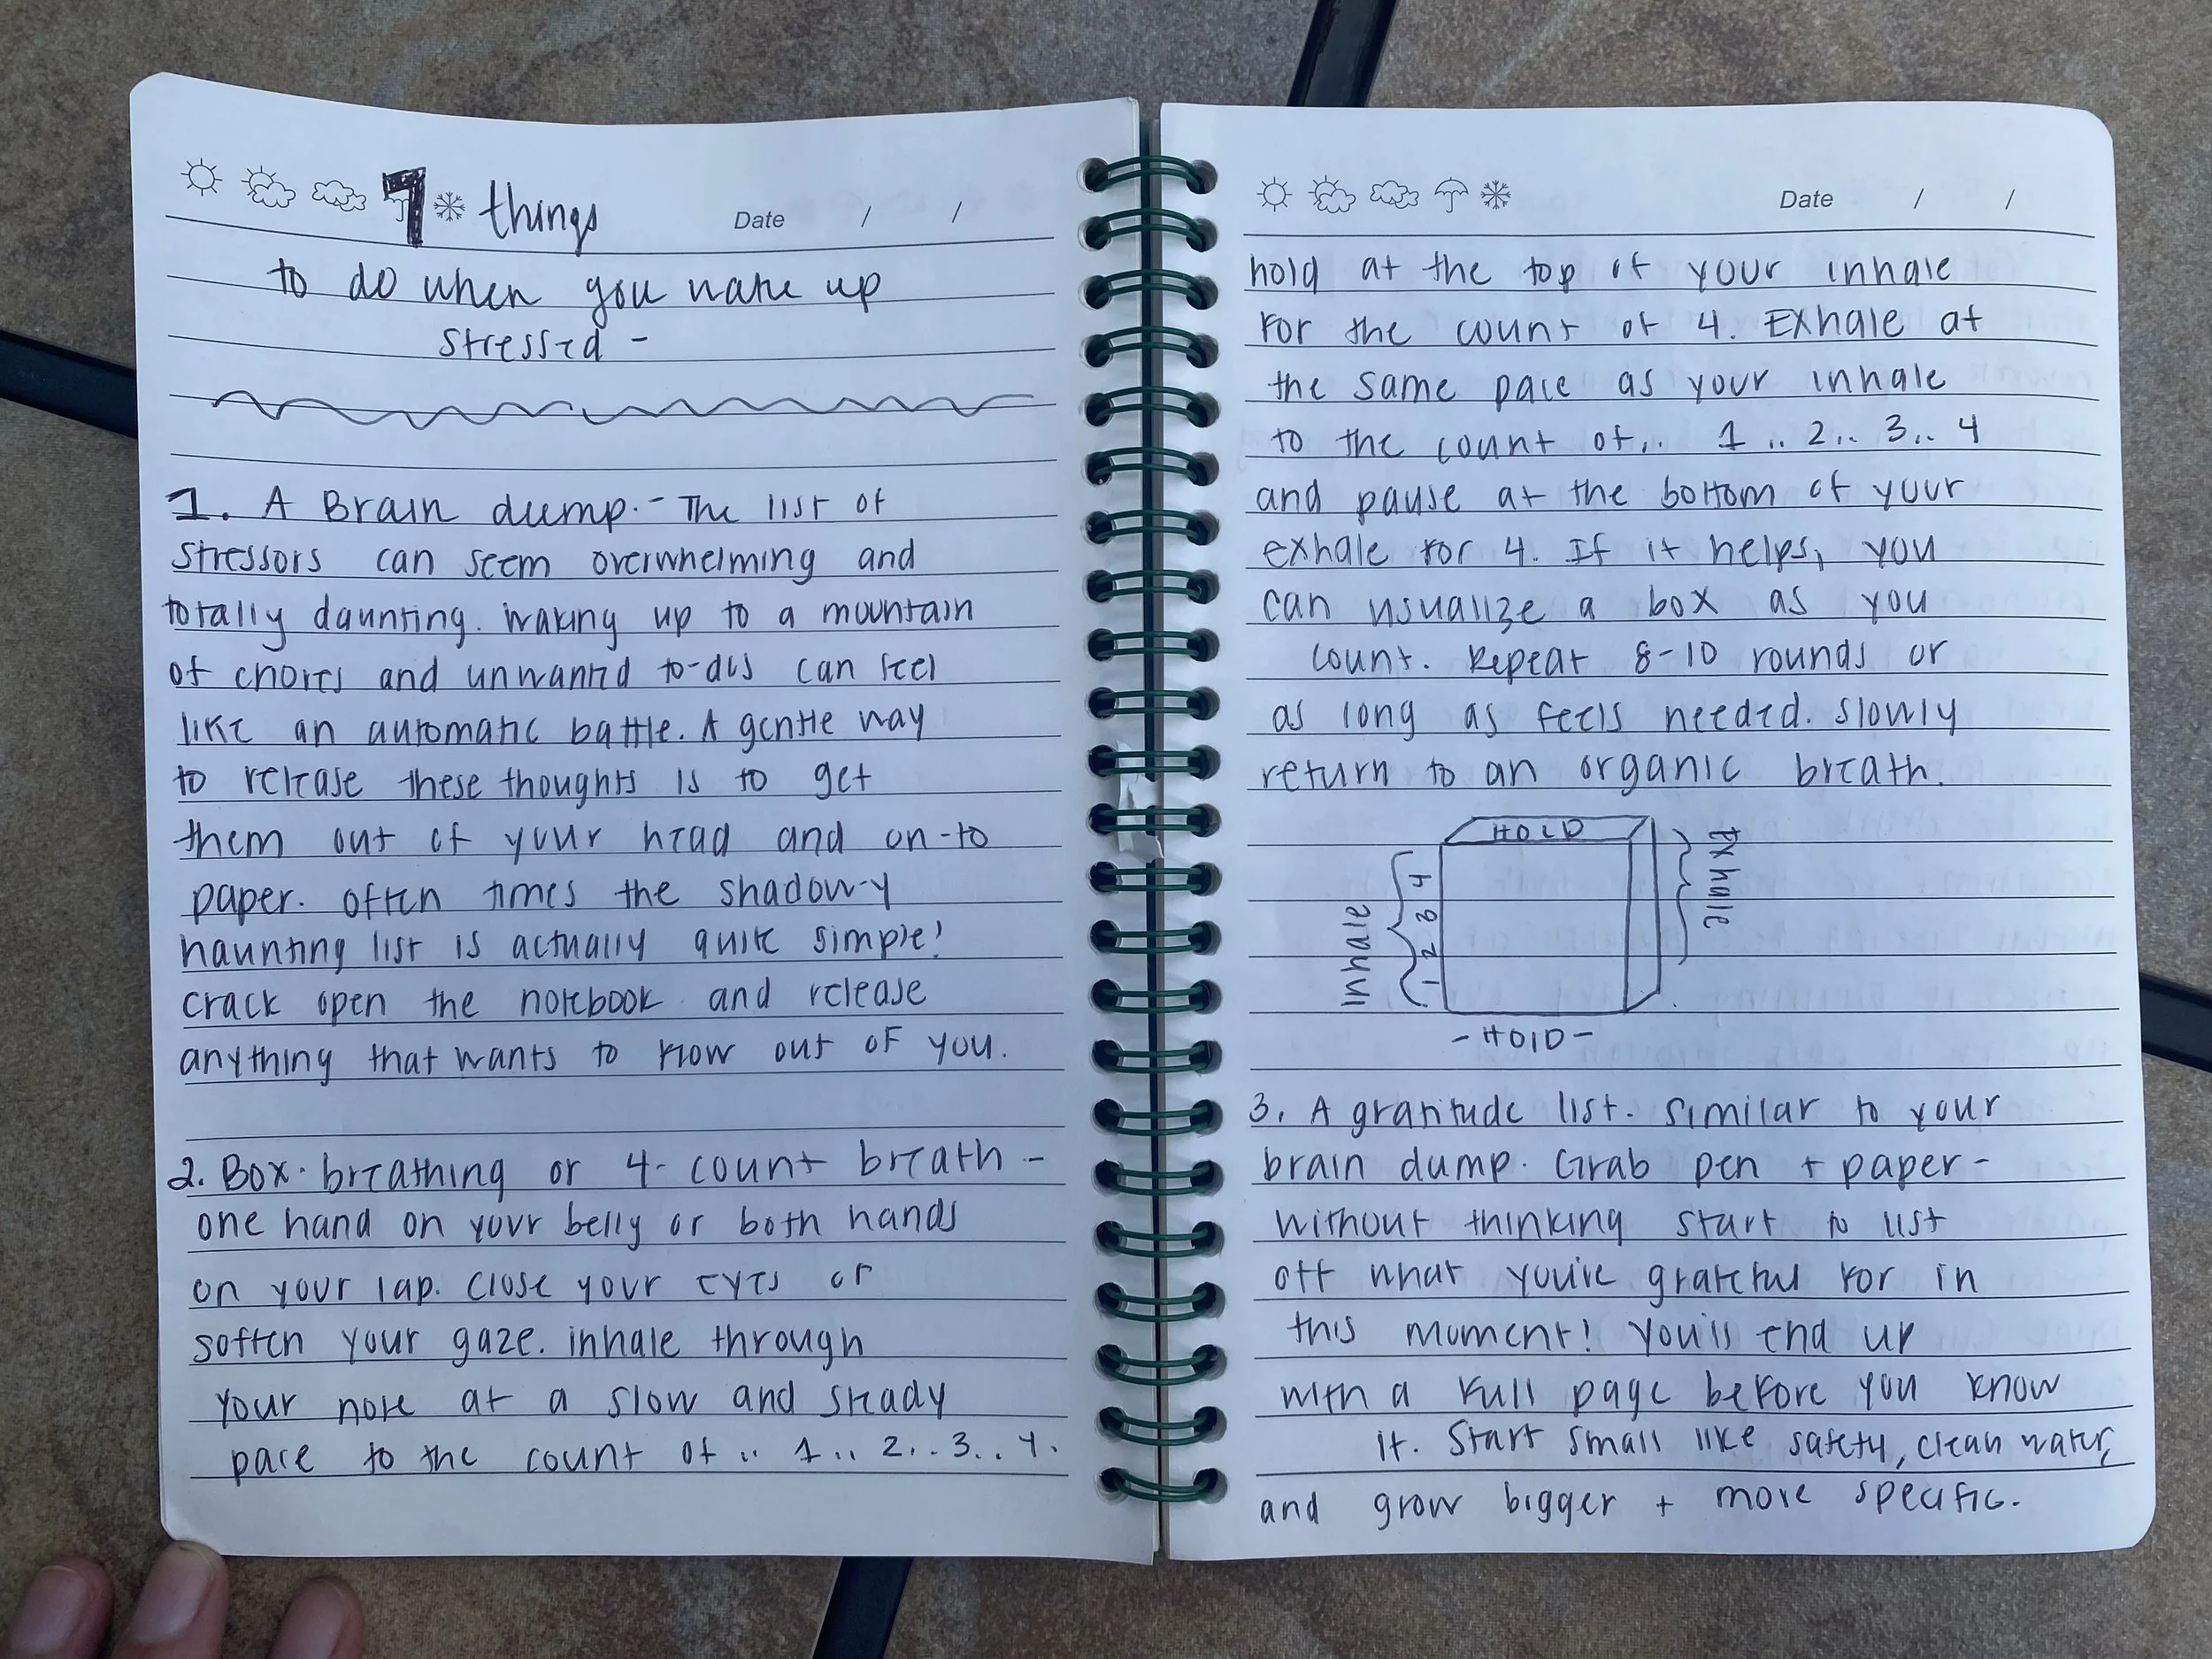 7 things
Date / /
to do when you wake up
stressed -
1. A Brain dump. - The list of
stressors can seem overwhelming and
totally daunting. waking up to a mountain
of chores and unwanted to-dos can feel
like an automatic battle. A gentle way
to release these thoughts is to get
them out of your head and on-to
paper. often times the shadow-y
haunting list is actually quite simple!
crack open the notebook and release
anything that wants to flow out of you.
2. Box-breathing or 4-count breath -
one hand on your belly or both hands
on your lap. Close your eyes or
soften your gaze. inhale through
your nose at a slow and steady
pace to the count of .. 1 .. 2 .. 3 .. 4.
Date / /
hold at the top of your inhale
for the count of 4. Exhale at
the same pace as your inhale
to the count of .. 1 .. 2 .. 3 .. 4
and pause at the bottom of your
exhale for 4. If it helps, you
can visualize a box as you
count. Repeat 8-10 rounds or
as long as feels needed. slowly
return to an organic breath.
HOLD
Inhale
1 2 3 4
Exhale
- HOLD -
3. A gratitude list. Similar to your
brain dump. Grab pen + paper -
without thinking start to list
off what you're grateful for in
this moment! You'll end up
with a full page before you know
it. Start small like safety, clean water,
and grow bigger + more specific.